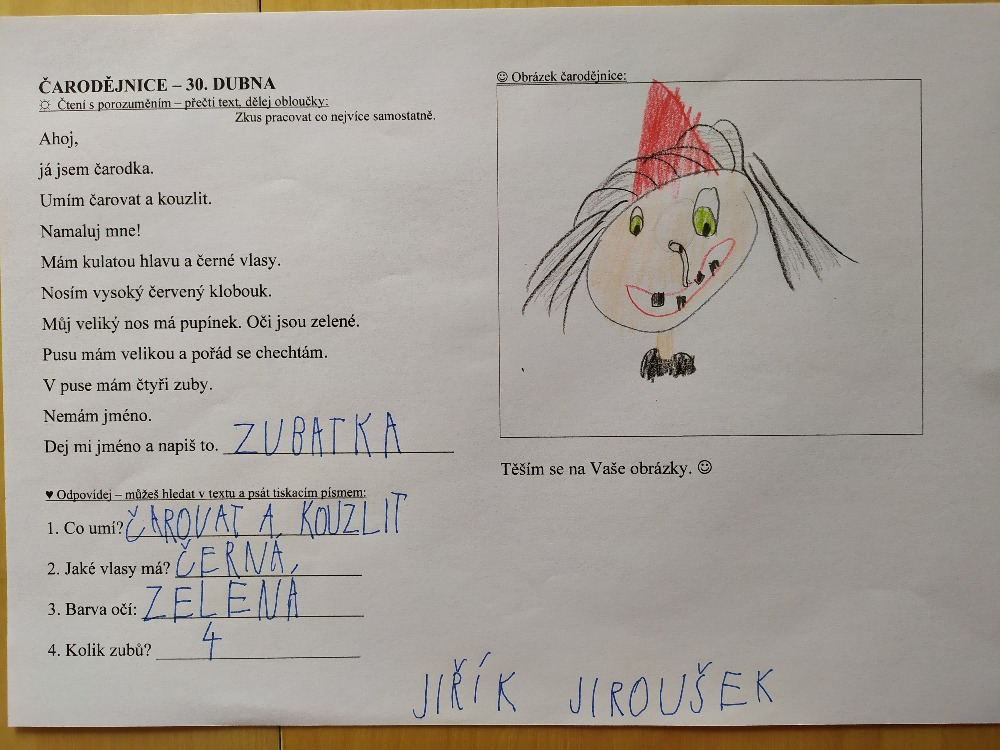 ČARODĚJNICE – 30. DUBNA
☼ Čtení s porozuměním – přečti text, dělej obloučky:
Zkus pracovat co nejvíce samostatně.
Ahoj,
já jsem čarodka.
Umím čarovat a kouzlit.
Namaluj mne!
Mám kulatou hlavu a černé vlasy.
Nosím vysoký červený klobouk.
Můj veliký nos má pupínek. Oči jsou zelené.
Pusu mám velikou a pořád se chechtám.
V puse mám čtyři zuby.
Nemám jméno.
Dej mi jméno a napiš to. ZUBATKA
♥ Odpovídej – můžeš hledat v textu a psát tiskacím písmem:
1. Co umí? ČAROVAT A KOUZLIT
2. Jaké vlasy má? ČERNÁ
3. Barva očí: ZELENÁ
4. Kolik zubů? 4
☺ Obrázek čarodějnice:
Těším se na Vaše obrázky. ☺
JIŘÍK JIROUŠEK